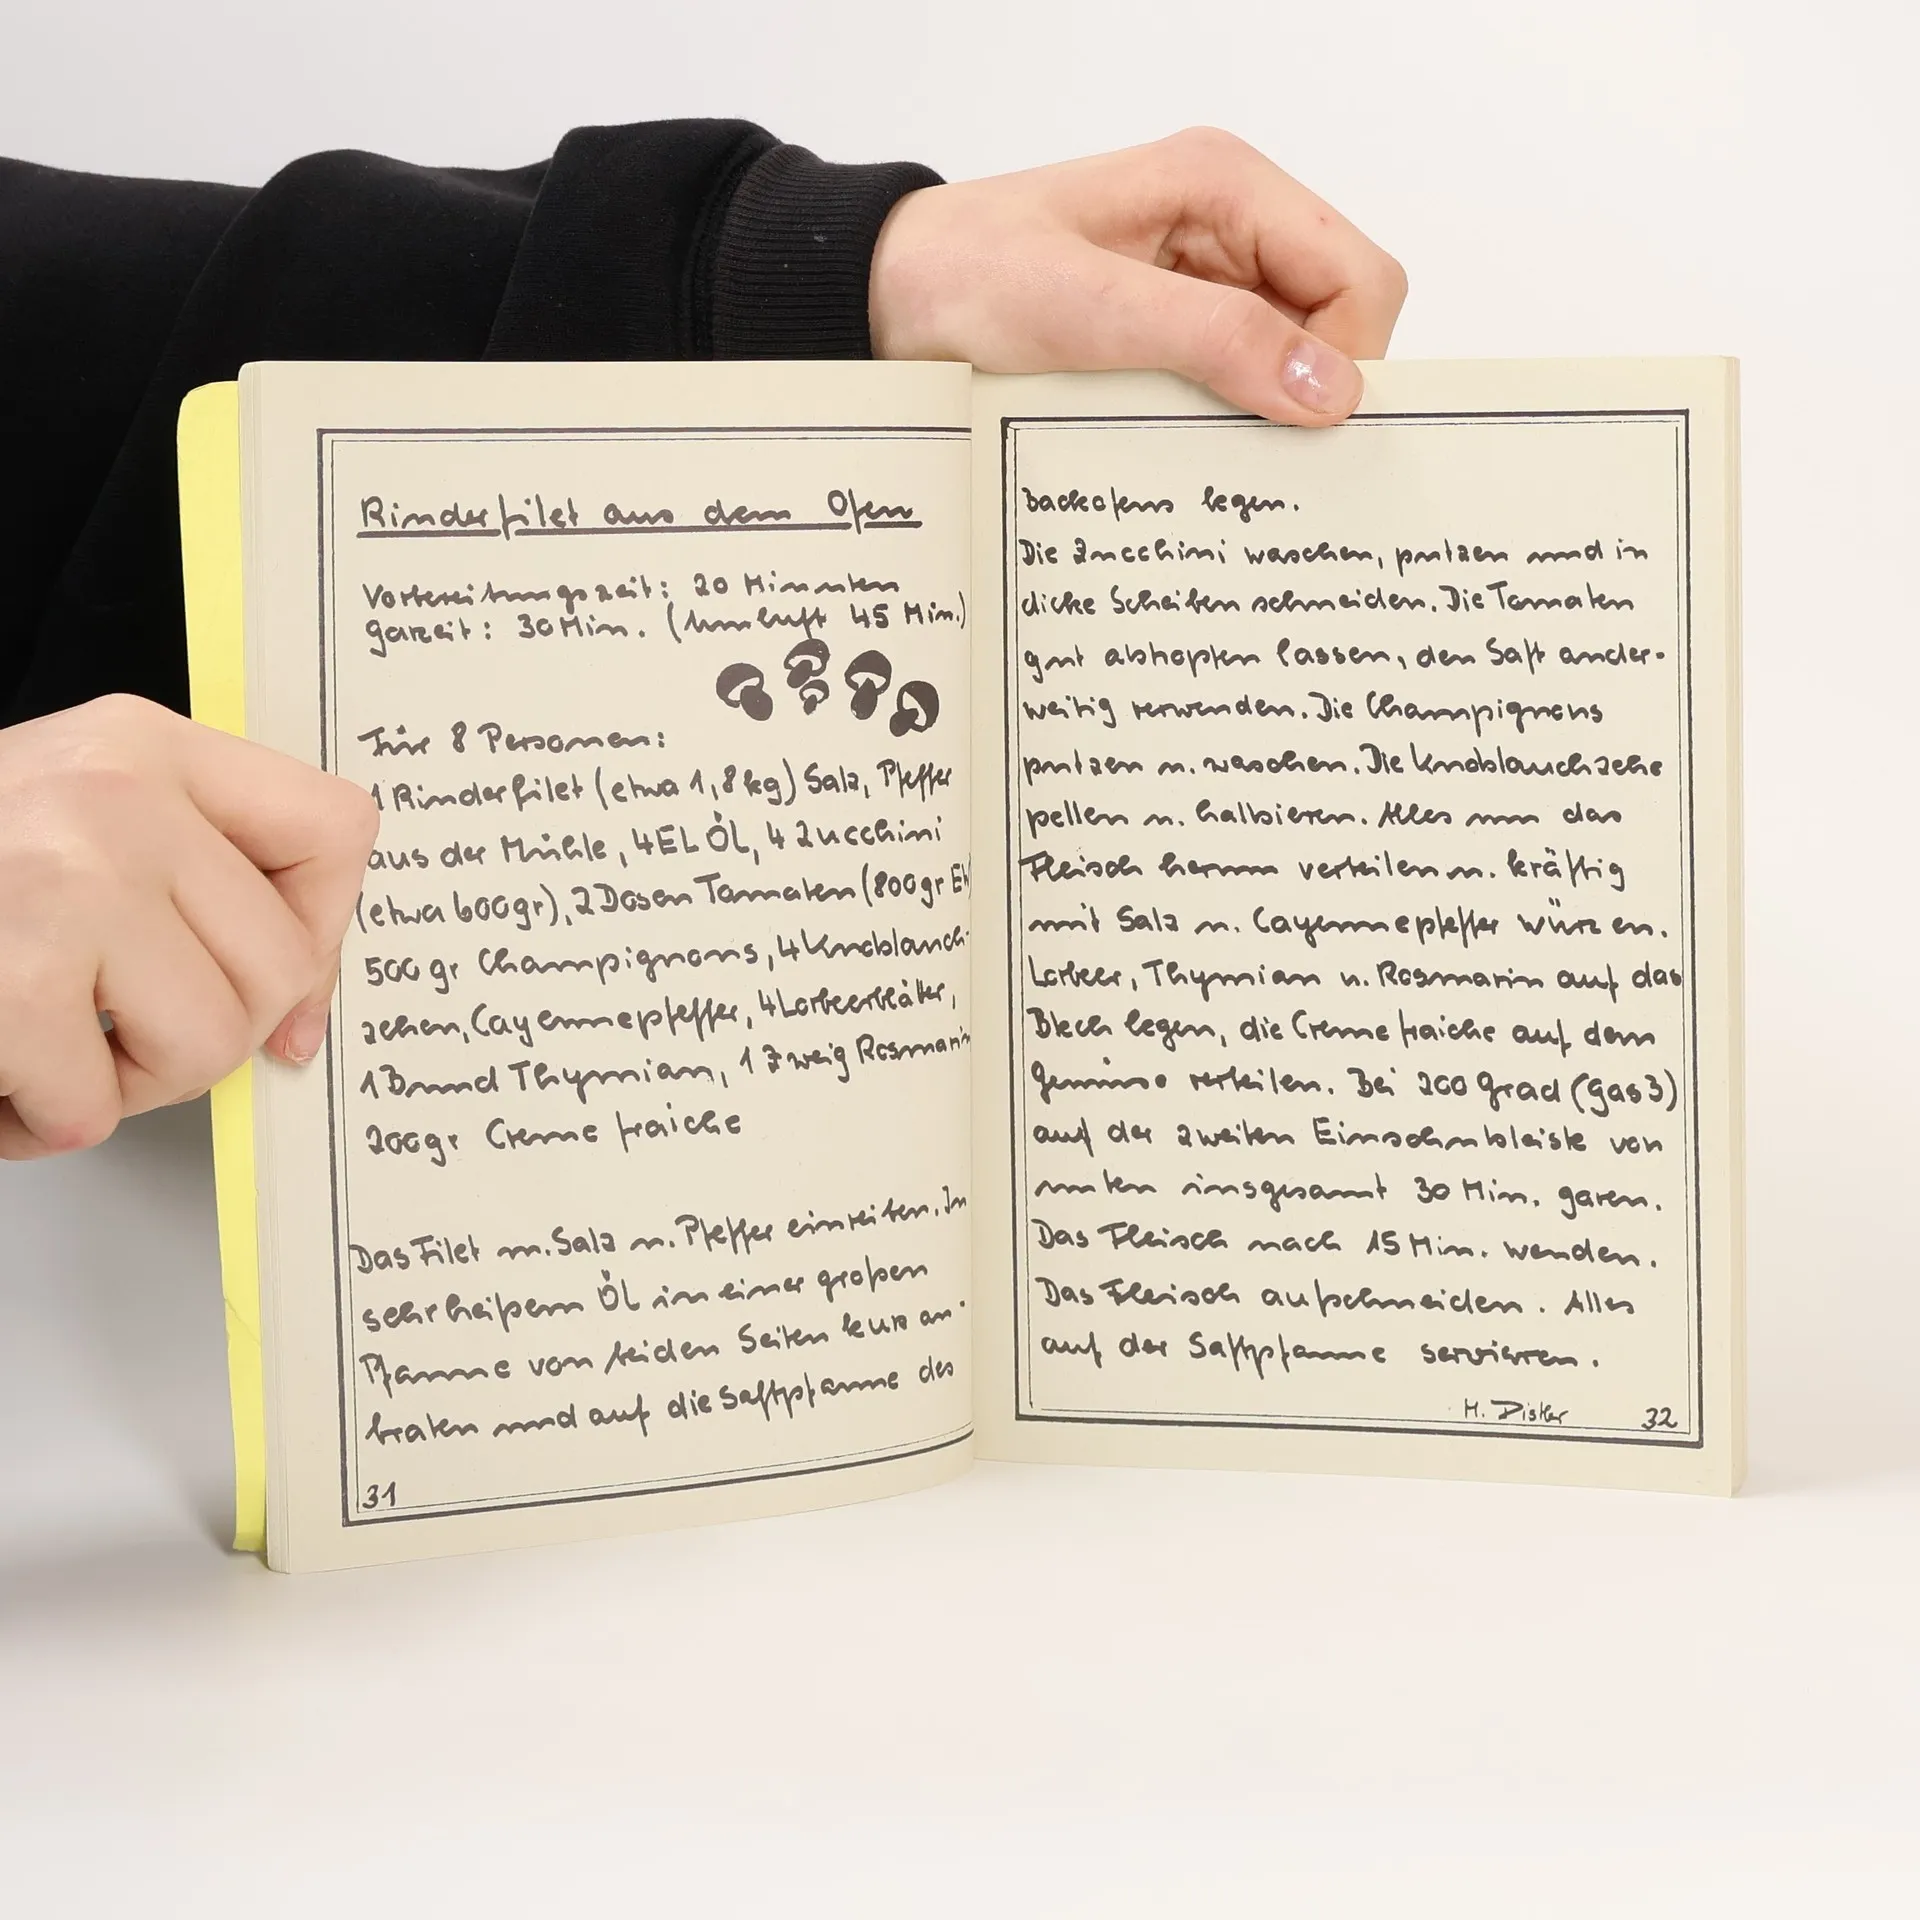 Rinderfilet aus dem Ofen
Vorbereitungszeit: 20 Minuten
Garzeit: 30 Min. (Umluft 45 Min.)
Für 8 Personen:
1 Rinderfilet (etwa 1,8 kg) Salz, Pfeffer
aus der Mühle, 4 EL ÖL, 4 Zucchini
(etwa 600gr), 2 Dosen Tomaten (800gr
500 gr Champignons, 4 Knoblauch-
zehen, Cayennepfeffer, 4 Lorbeerblätter,
1 Bund Thymian, 1 Zweig Rosmarin
200gr Creme fraiche
Das Filet m. Salz u. Pfeffer einreiben. In
sehr heißem ÖL in einer großen
Pfanne von beiden Seiten kurz an-
braten und auf die Saftpfanne des
31
Backofens legen.
Die Zucchini waschen, putzen und in
dicke Scheiben schneiden. Die Tomaten
gut abtropfen lassen, den Saft ander-
weitig verwenden. Die Champignons
putzen u. waschen. Die Knoblauchzehe
pellen u. halbieren. Alles um das
Fleisch herum verteilen u. kräftig
mit Salz u. Cayennepfeffer würzen.
Lorbeer, Thymian u. Rosmarin auf das
Blech legen, die Creme fraiche auf dem
Gemüse verteilen. Bei 200 Grad (Gas 3)
auf der zweiten Einschubleiste von
unten insgesamt 30 Min. garen.
Das Fleisch nach 15 Min. wenden.
Das Fleisch aufschneiden. Alles
auf der Saftpfanne servieren.
H. Distler
32